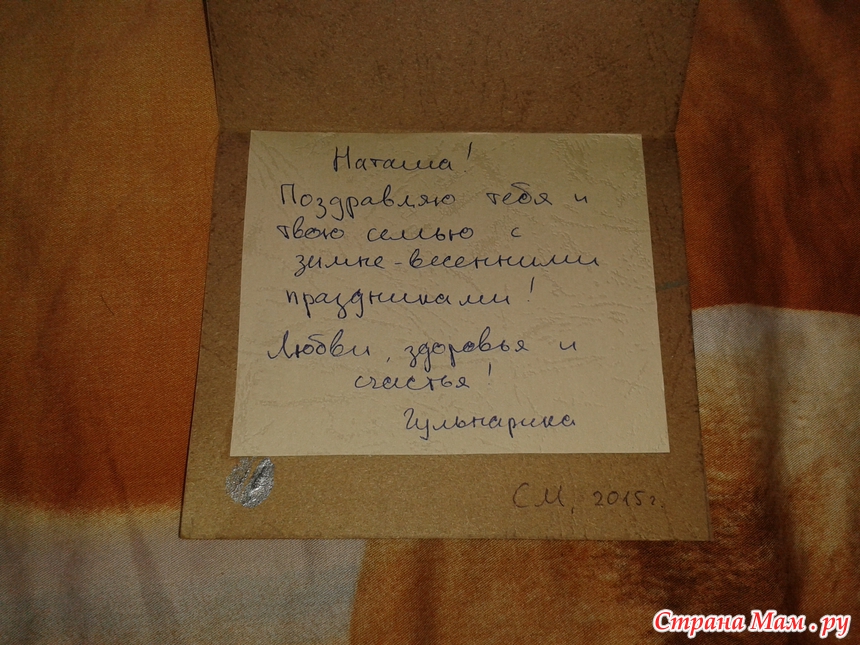 Наташа!
Поздравляю тебя и
твою семью с
зимне-весенними
праздниками!
Любви, здоровья и
счастья!
Гульнарика
СМ, 2015г.
Страна Мам.ру